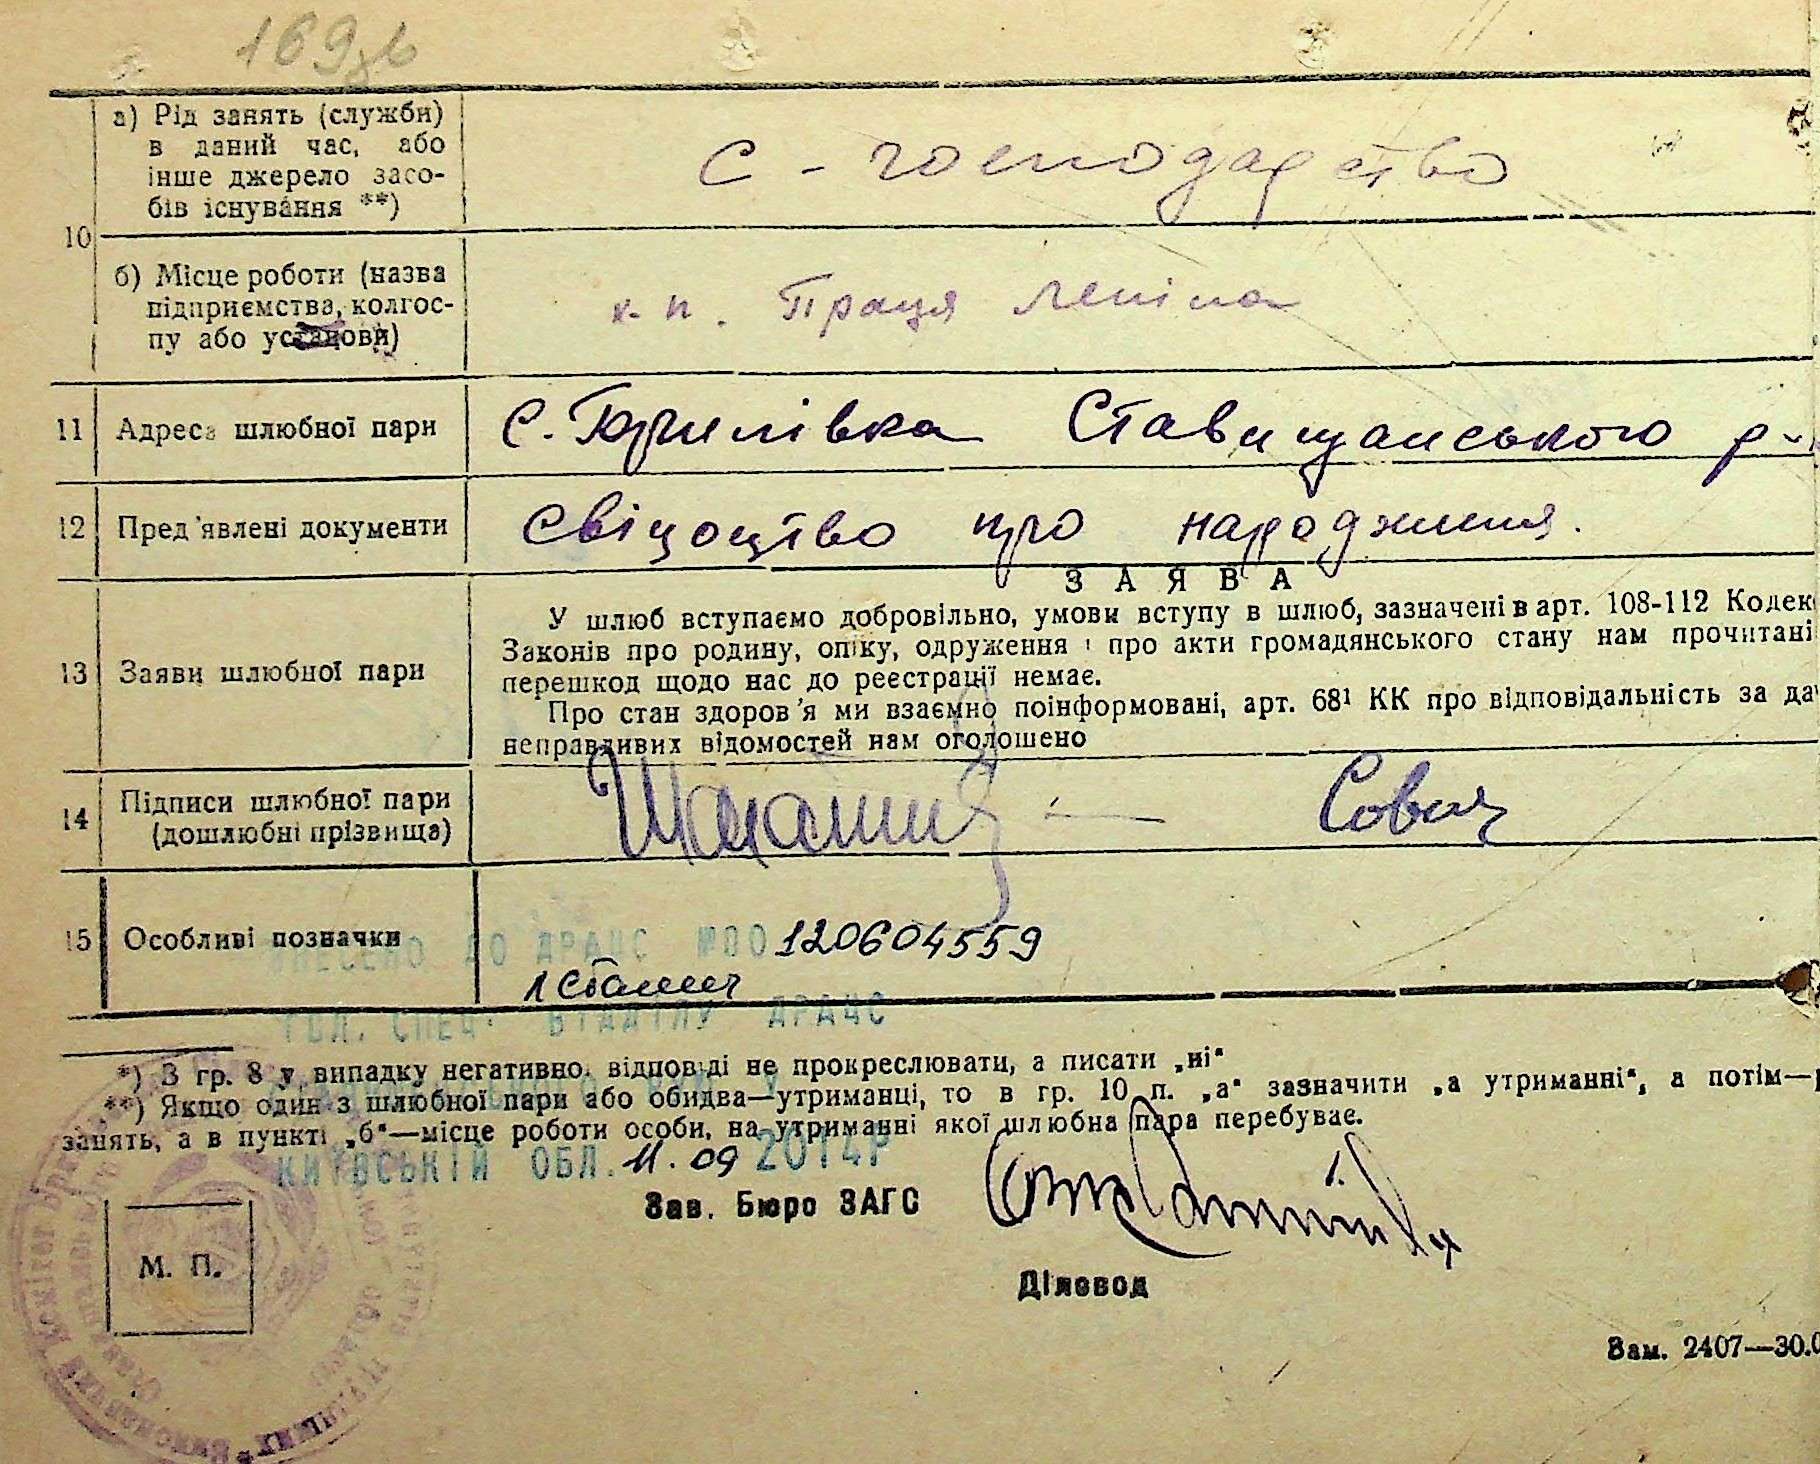 169зв
а) Рід занять (служби)
в даний час, або
інше джерело засо-
бів існування **)
с - господарство
10
б) Місце роботи (назва
підприємства, колгос-
пу або установи)
к-п. Праця Леніна
11 Адреса шлюбної пари
с. Ставищанського р-
12 Пред'явлені документи
Свіцоцтво про народження.
З А Я В А
13 Заяви шлюбної пари
У шлюб вступаємо добровільно, умови вступу в шлюб, зазначені в арт. 108-112 Кодек
Законів про родину, опіку, одруження і про акти громадянського стану нам прочитані
перешкод щодо нас до реєстрації немає.
Про стан здоров'я ми взаємно поінформовані, арт. 68¹ КК про відповідальність за да
неправдивих відомостей нам оголошено
14 Підписи шлюбної пари
(дошлюбні прізвища)
15 Особливі позначки
ВНЕСЕНО ДО ДРАЦС №00120604559
ГОЛ. СПЕЦ. ВІДДІЛУ ДРАЦС
*) З гр. 8 у випадку негативно. відповіді не прокреслювати, а писати „ні“
**) Якщо один з шлюбної пари або обидва—утриманці, то в гр. 10 п. „а“ зазначити „а утриманні“, а потім—
занять, а в пункті „б“—місце роботи особи, на утриманні якої шлюбна пара перебуває.
КИЇВСЬКІЙ ОБЛ. 11.09 2014Р
Зав. Бюро ЗАГС
М. П.
Діловод
Зам. 2407—30.0